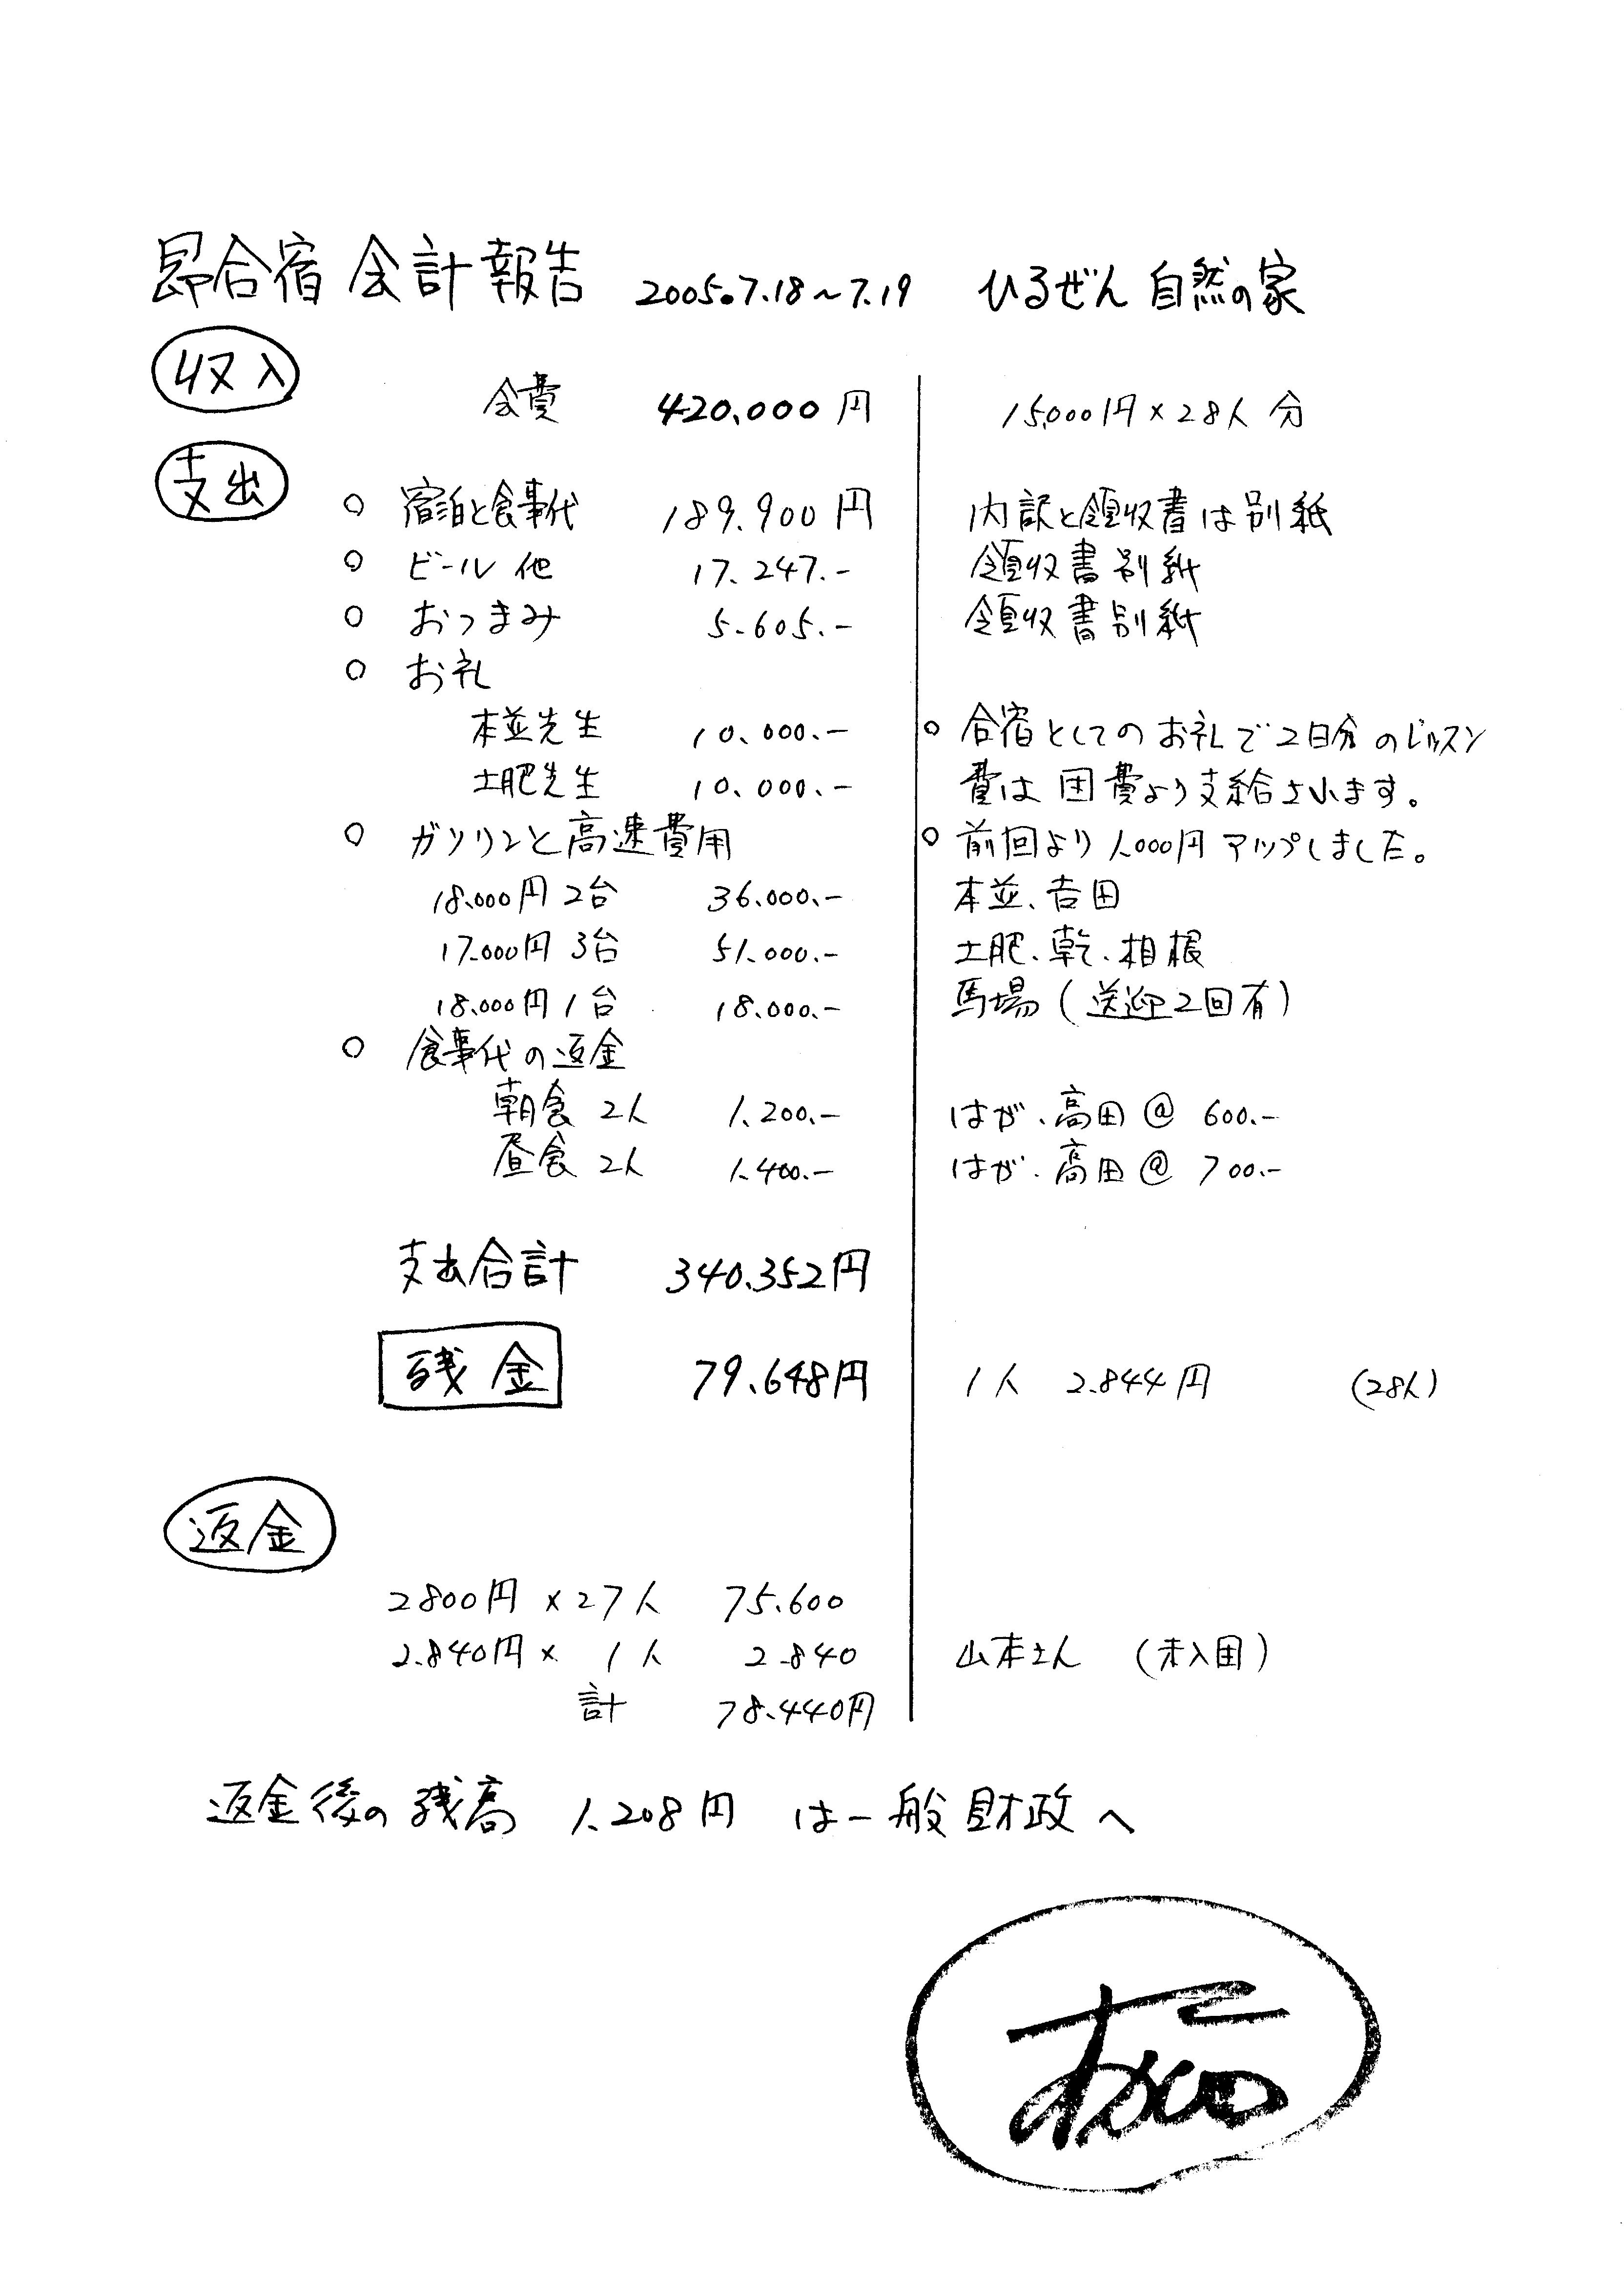 昴合宿 会計報告 2005.7.18～7.19 ひるぜん 自然の家
収入
会費 420.000円 15,000円×28人 分
支出
○ 宿泊と食事代 189.900円 内訳と領収書は別紙
○ ビール他 17.247.- 領収書別紙
○ おつまみ 5.605.- 領収書別紙
○ お礼
本並先生 10.000.- ○ 合宿としてのお礼で2日分のレッスン
土肥先生 10.000.- 費は団費より支給されます。
○ ガソリンと高速費用 ○ 前回より1.000円アップしました。
18.000円 2台 36.000.- 本並、吉田
17.000円 3台 51.000.- 土肥、乾、相根
18.000円 1台 18.000.- 馬場 (送迎2回有)
○ 食事代の返金
朝食 2人 1.200.- はが、高田 @ 600.-
昼食 2人 1.400.- はが、高田 @ 700.-
支出合計 340.352円
残金 79.648円 1人 2.844円 (28人)
返金
2800円 × 27人 75.600
2.840円 × 1人 2.840 山本さん (未入団)
計 78.440円
返金後の残高 1.208円 は一般財政へ